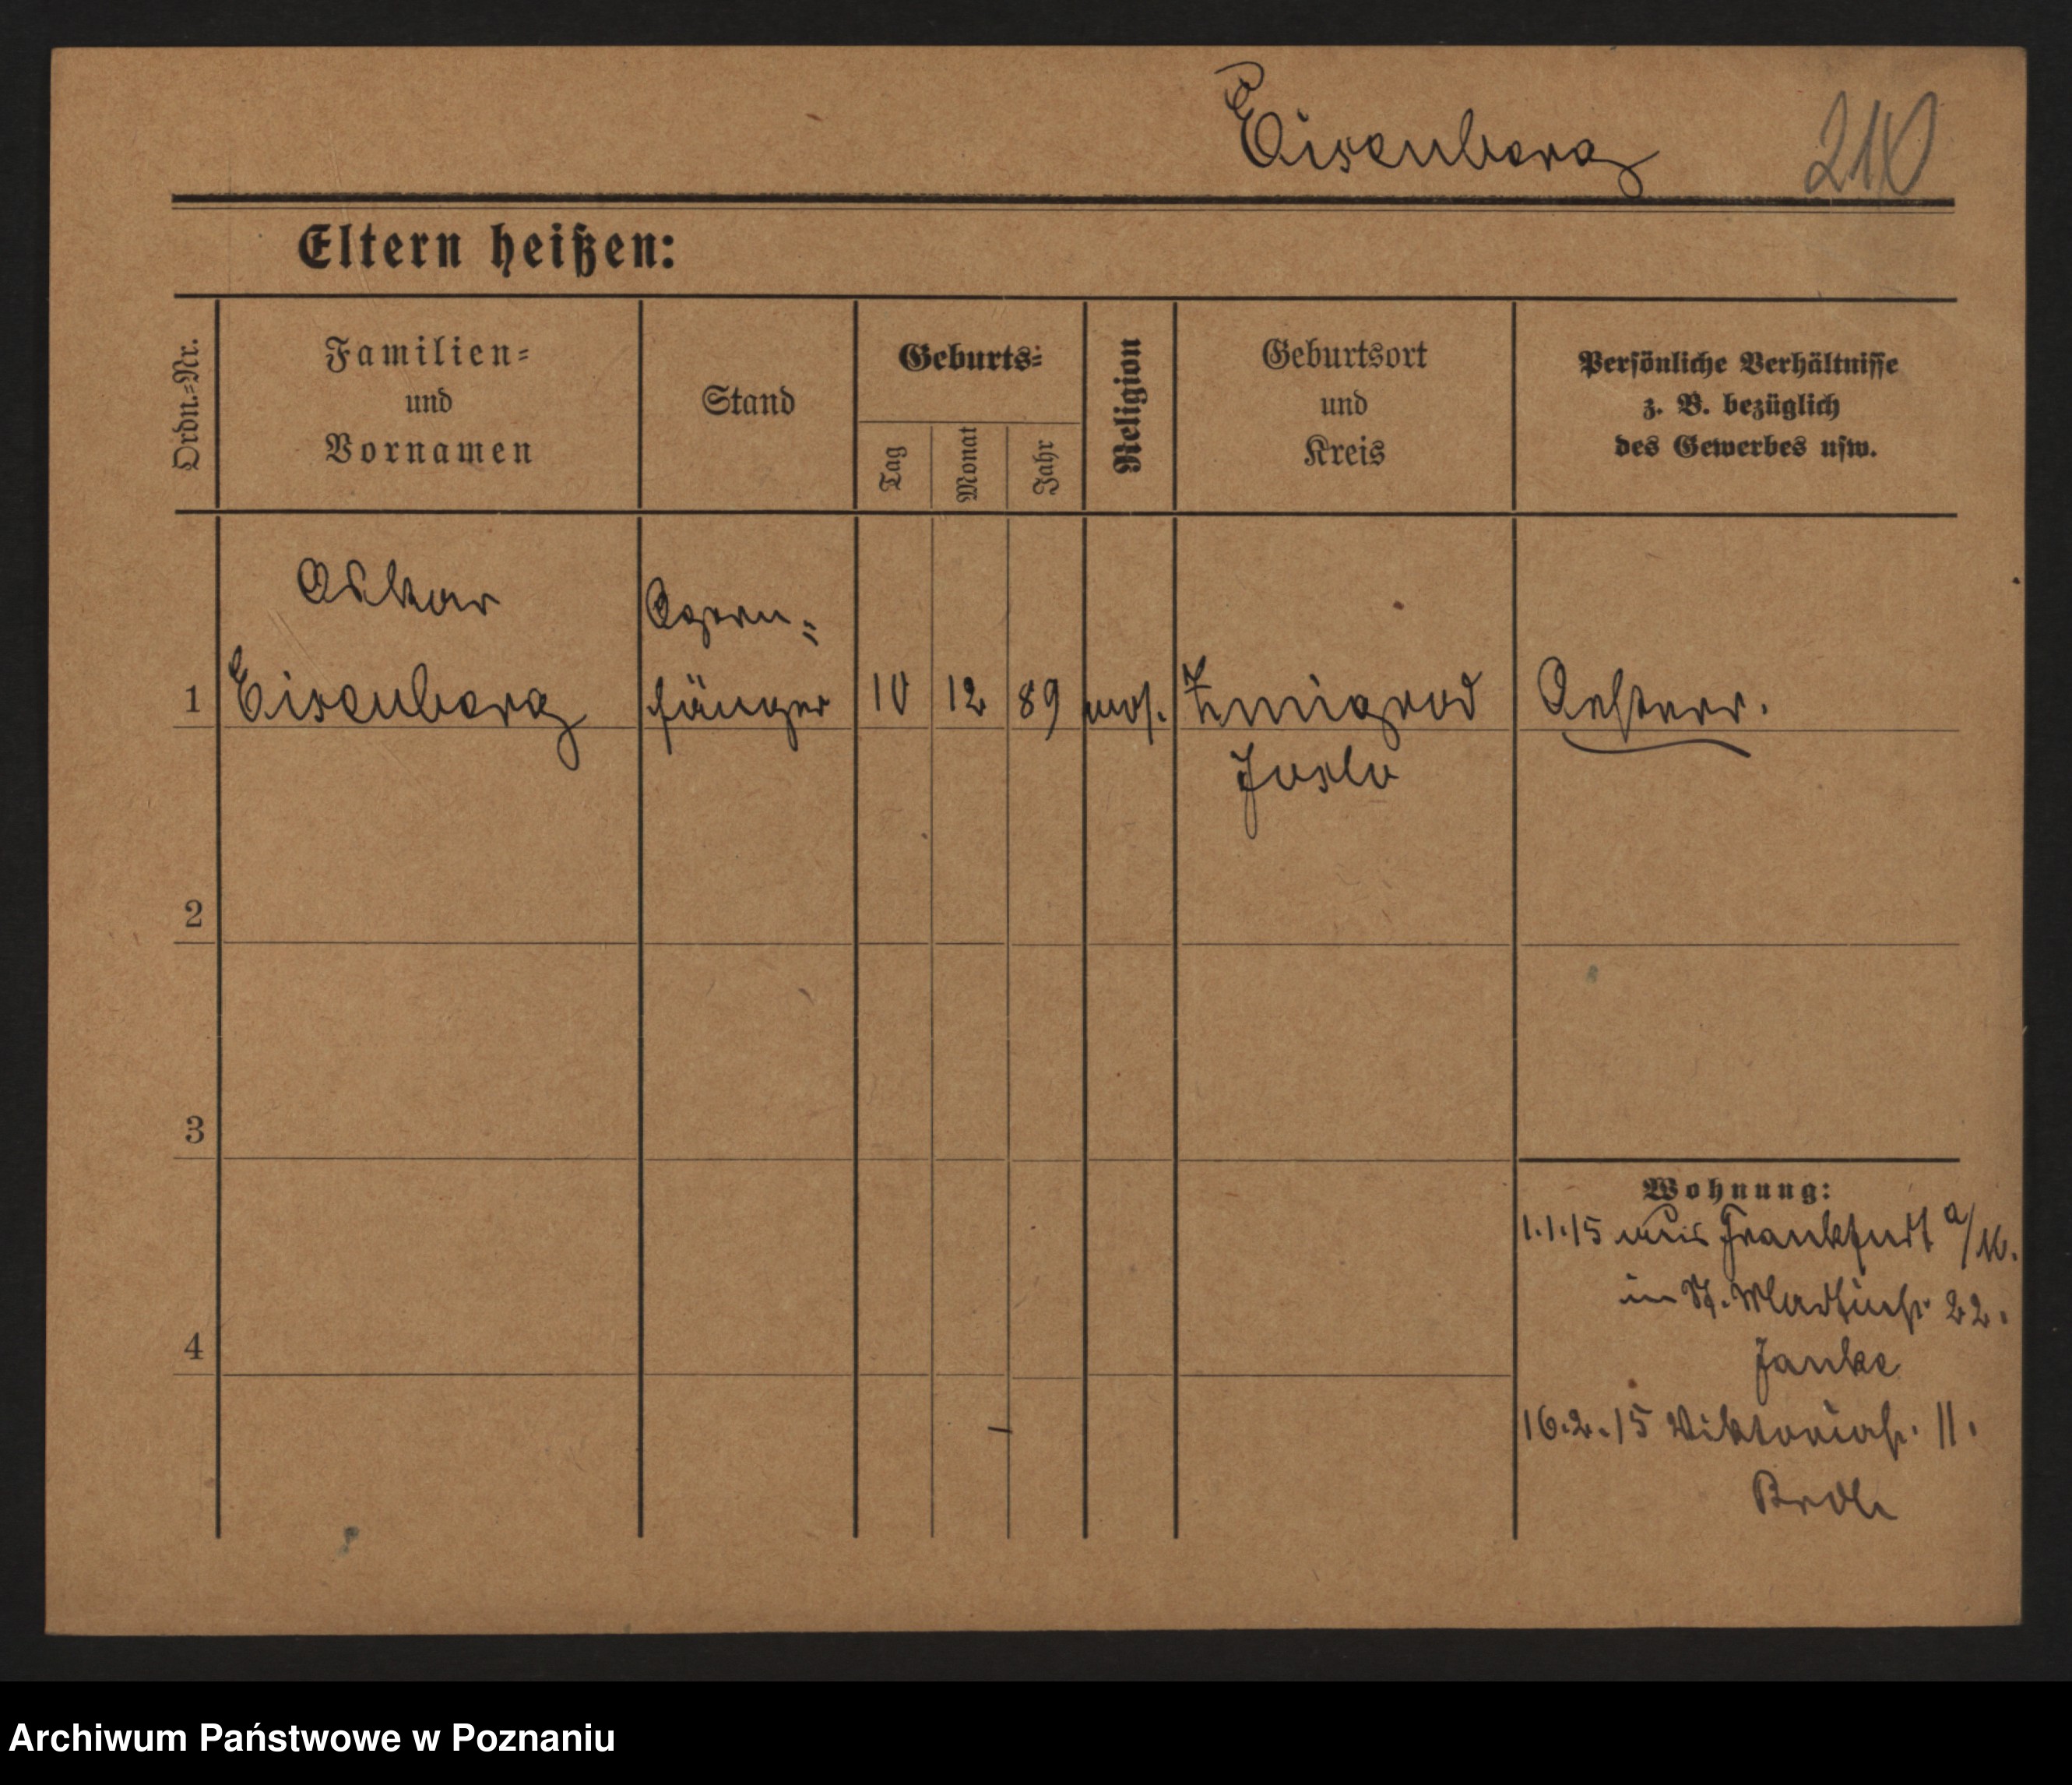 Eisenberg 210
Eltern heißen:
Ordn.=Nr.
Familien=
und
Vornamen
Stand
Geburts=
Tag
Monat
Jahr
Religion
Geburtsort
und
Kreis
Persönliche Verhältnisse
z. B. bezüglich
des Gewerbes usw.
Oskar
Opern=
1 Eisenberg sänger 10 12 89 mos. Zmigrod Oesterr.
Jaslo
2
3
Wohnung:
1.1.15 aus Frankfurt a/M.
in St. Martinstr. 22.
4
Janke
16.2.15 Viktoriastr. 11.
Archiwum Państwowe w Poznaniu